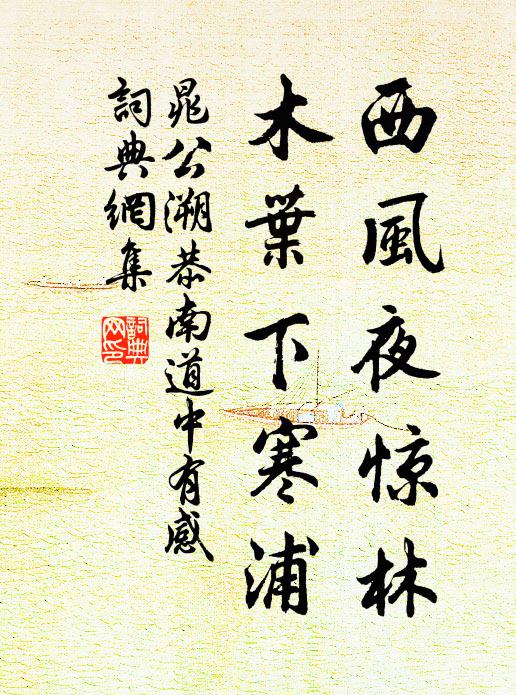 西風夜惊林
木葉下寒浦
晁公溯恭南道中有感
詞典網集
詞典
网印